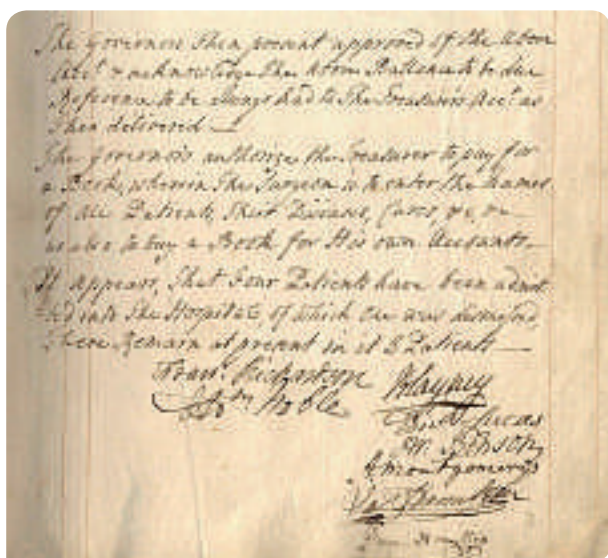 The Governors then present approved of the above
Acct & acknowledge the above Ballance to be due
Reference to be always had to the Treasurers Acct as
then delivered —
The Governors authorize the Treasurer to pay for
a Book, wherein the Surgeon is to enter the Names
of all Patients, their Diseases, Cures, &c, &c
is also to buy a Book for His own Accounts —
It appears, that Four Patients have been admit
=ted into the Hospital, of which One was discharged,
there Remain at present in it 3 Patients —
Blayney
Noble
Lucas
A Montgomery